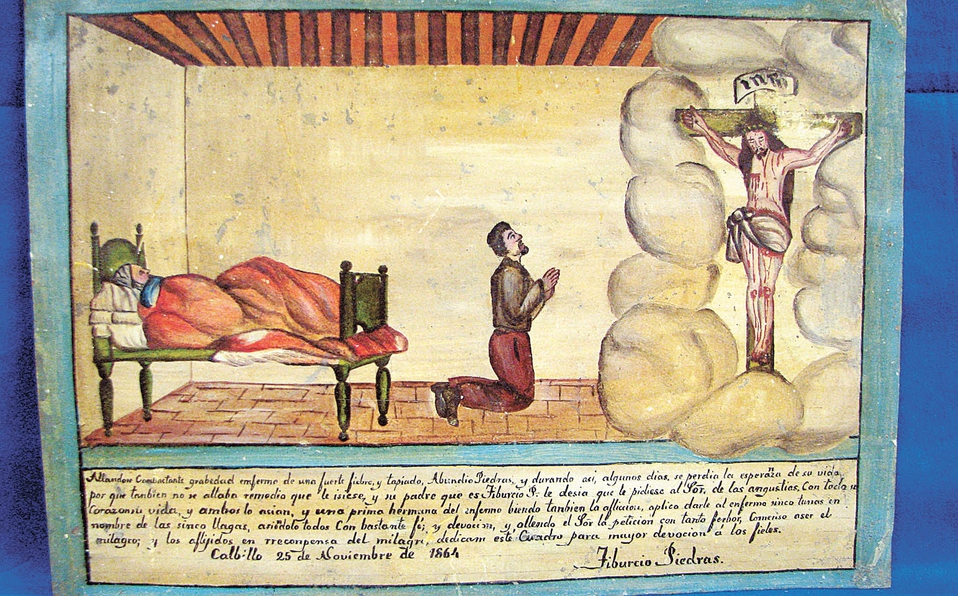 INRI
Allandose Conbastante grabedad enfermo de una fuerte fiebre, y tapiado, Abundio Piedras, y durando asi, algunos dias, se perdia la esperanza de su vida,
por que tanbien no se allaba remedio que le isiese, y su padre que es Tiburcio P. le desia que le pidiese al Sōr. de las angustias, Con todo su
Corazon su vida, y ambos lo asian, y una prima hermana del enfermo biendo tanbien la aflicion, aplico darle al enfermo sinco tunas en
nombre de las sinco llagas, asiendolo todos Con bastante fé, y devocion, y ollendo el Sōr la peticion con tanto ferbor, Comenso aser el
milagro; y los aflijidos en rrecompensa del milagro, dedican este Cuadro para mayor devocion á los fieles.
Calbillo 25 de Noviembre de 1864
Tiburcio Piedras.